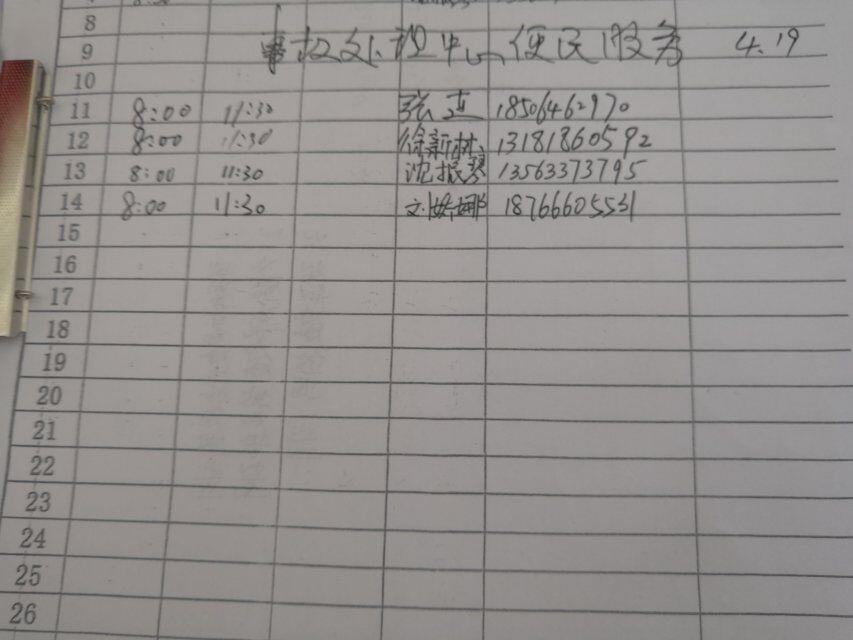 8
9 事故处理中心便民服务 4.19
10
11 8:00 11:30 张 18506462970
12 8:00 11:30 徐新林 13181860592
13 8:00 11:30 沈振琴 13563373795
14 8:00 11:30 刘娜 18766605531
15
16
17
18
19
20
21
22
23
24
25
26